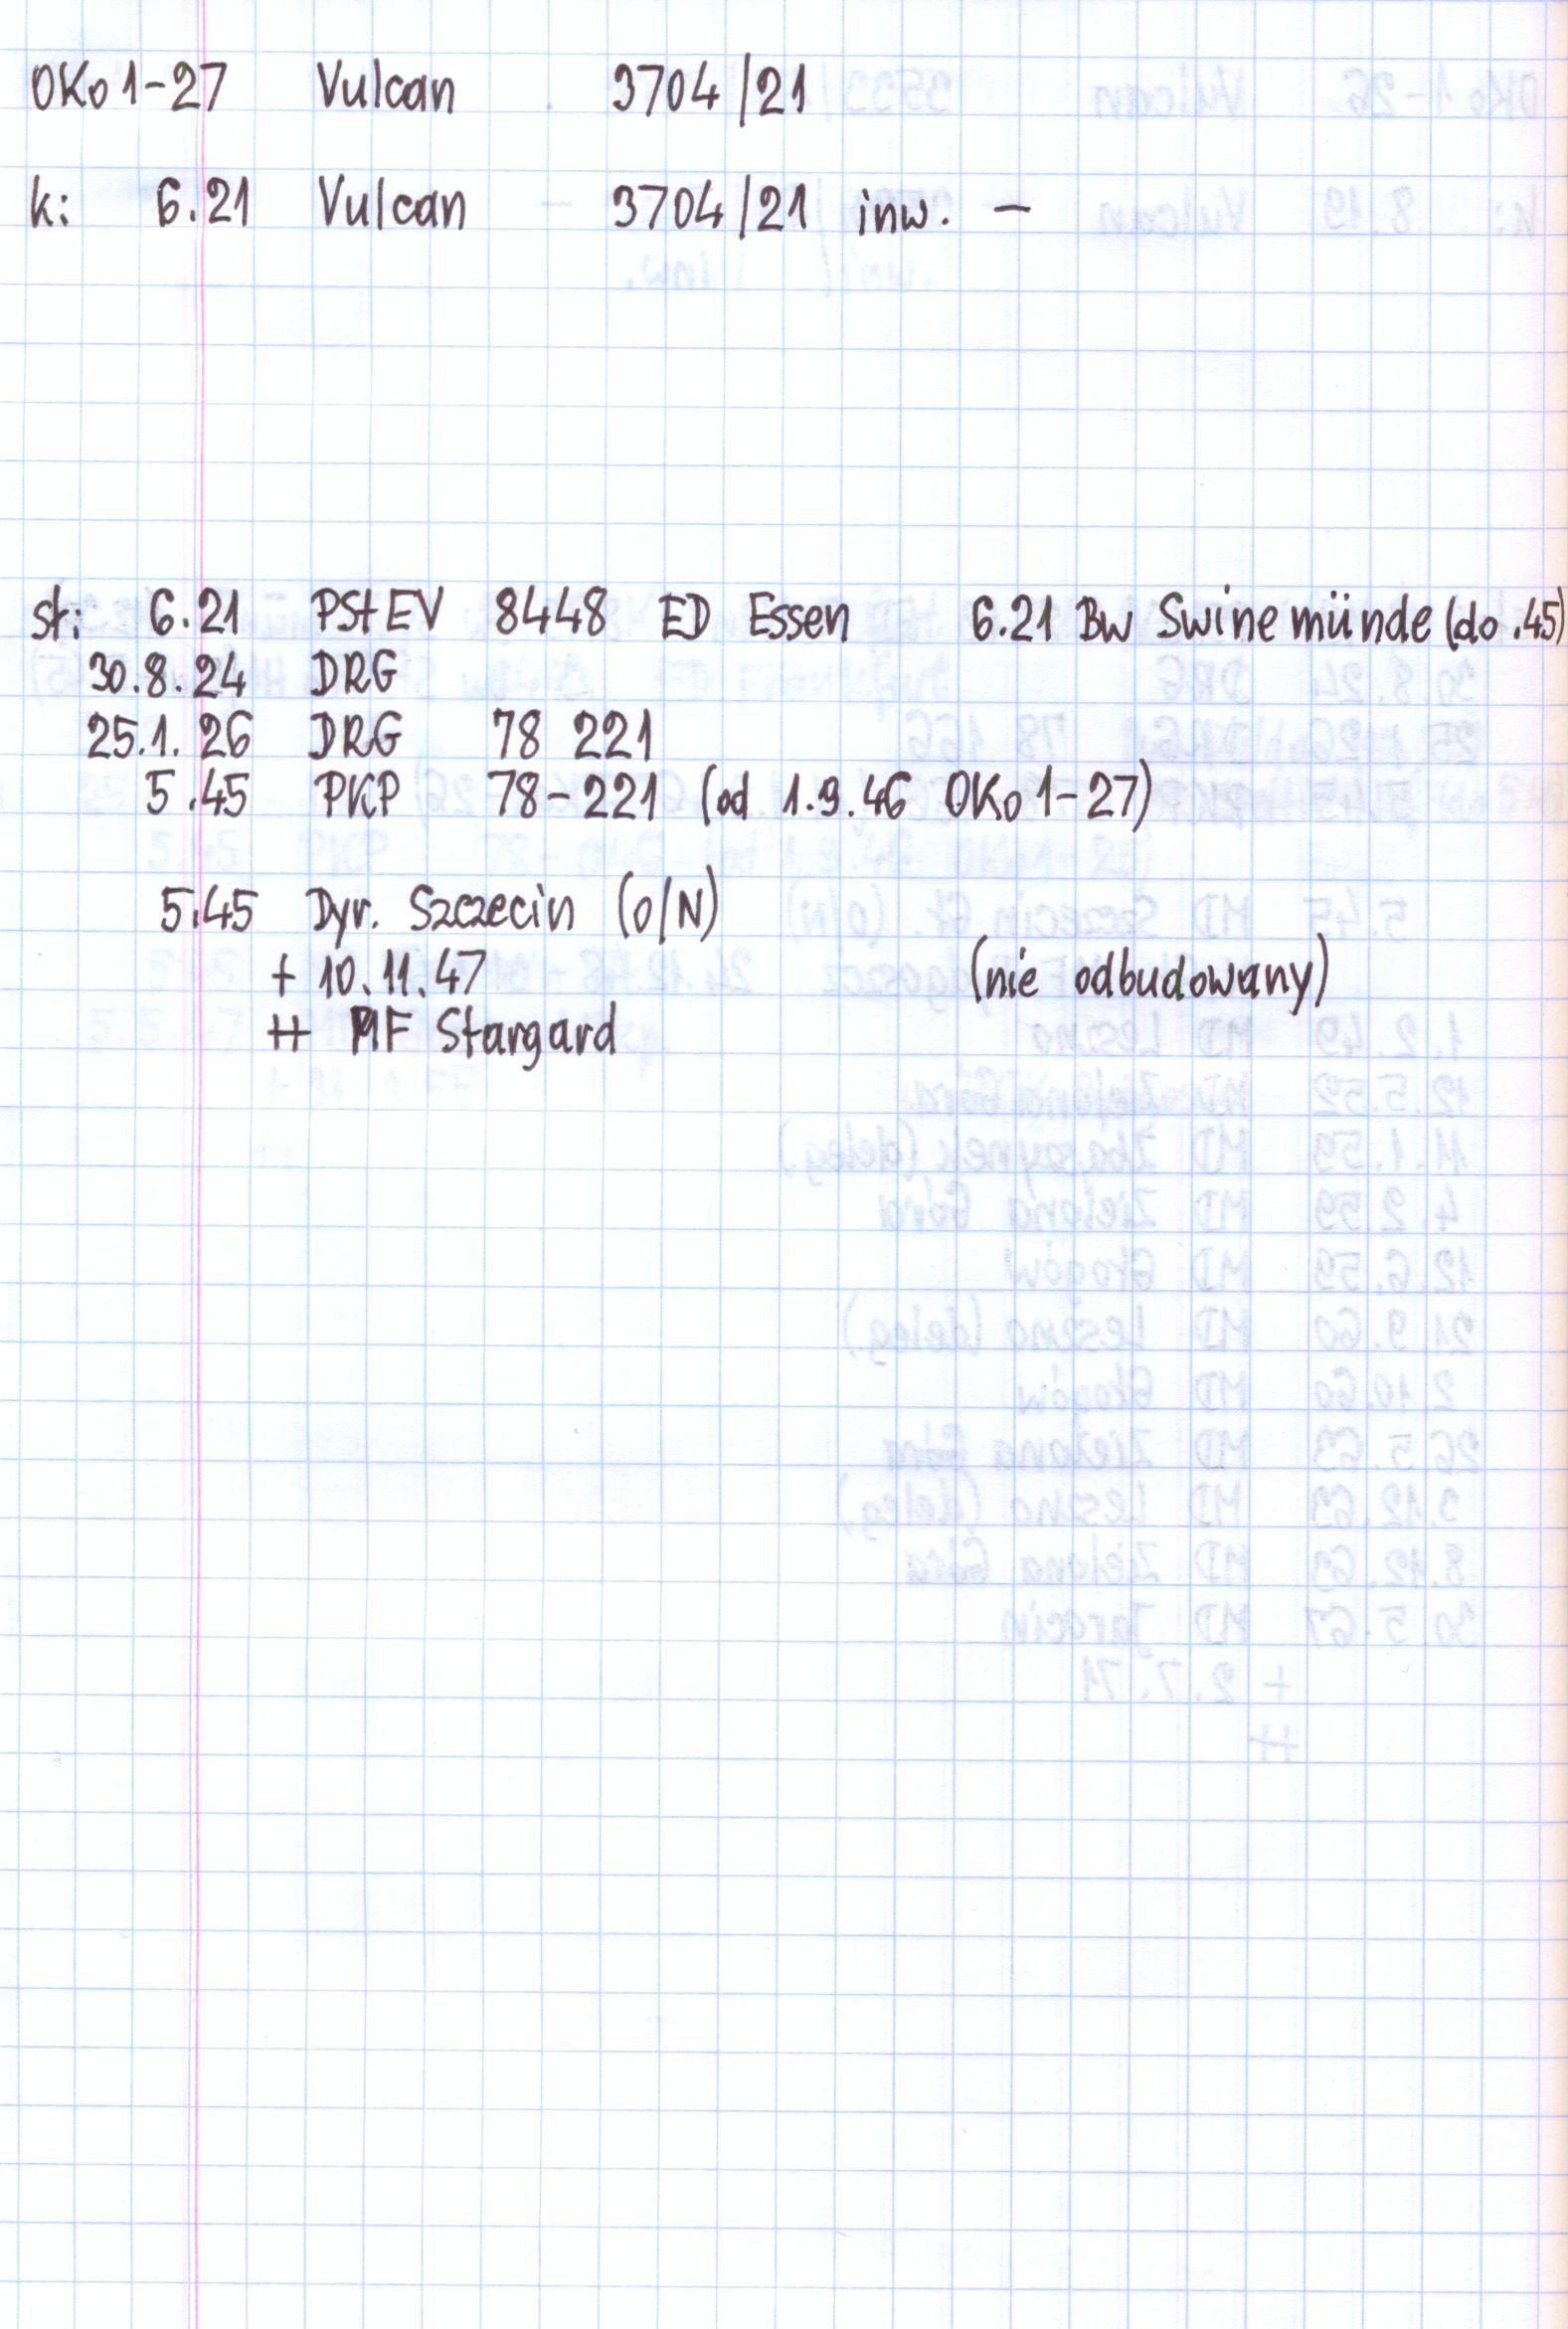 OKo1-27 Vulcan 3704/21
k: 6.21 Vulcan 3704/21 inw. –
st: 6.21 PStEV 8448 ED Essen 6.21 Bw Swinemünde (do .45)
30.8.24 DRG
25.1.26 DRG 78 221
5.45 PKP 78-221 (od 1.9.46 OKo1-27)
5.45 Dyr. Szczecin (O/N)
+ 10.11.47 (nie odbudowany)
++ Stargard